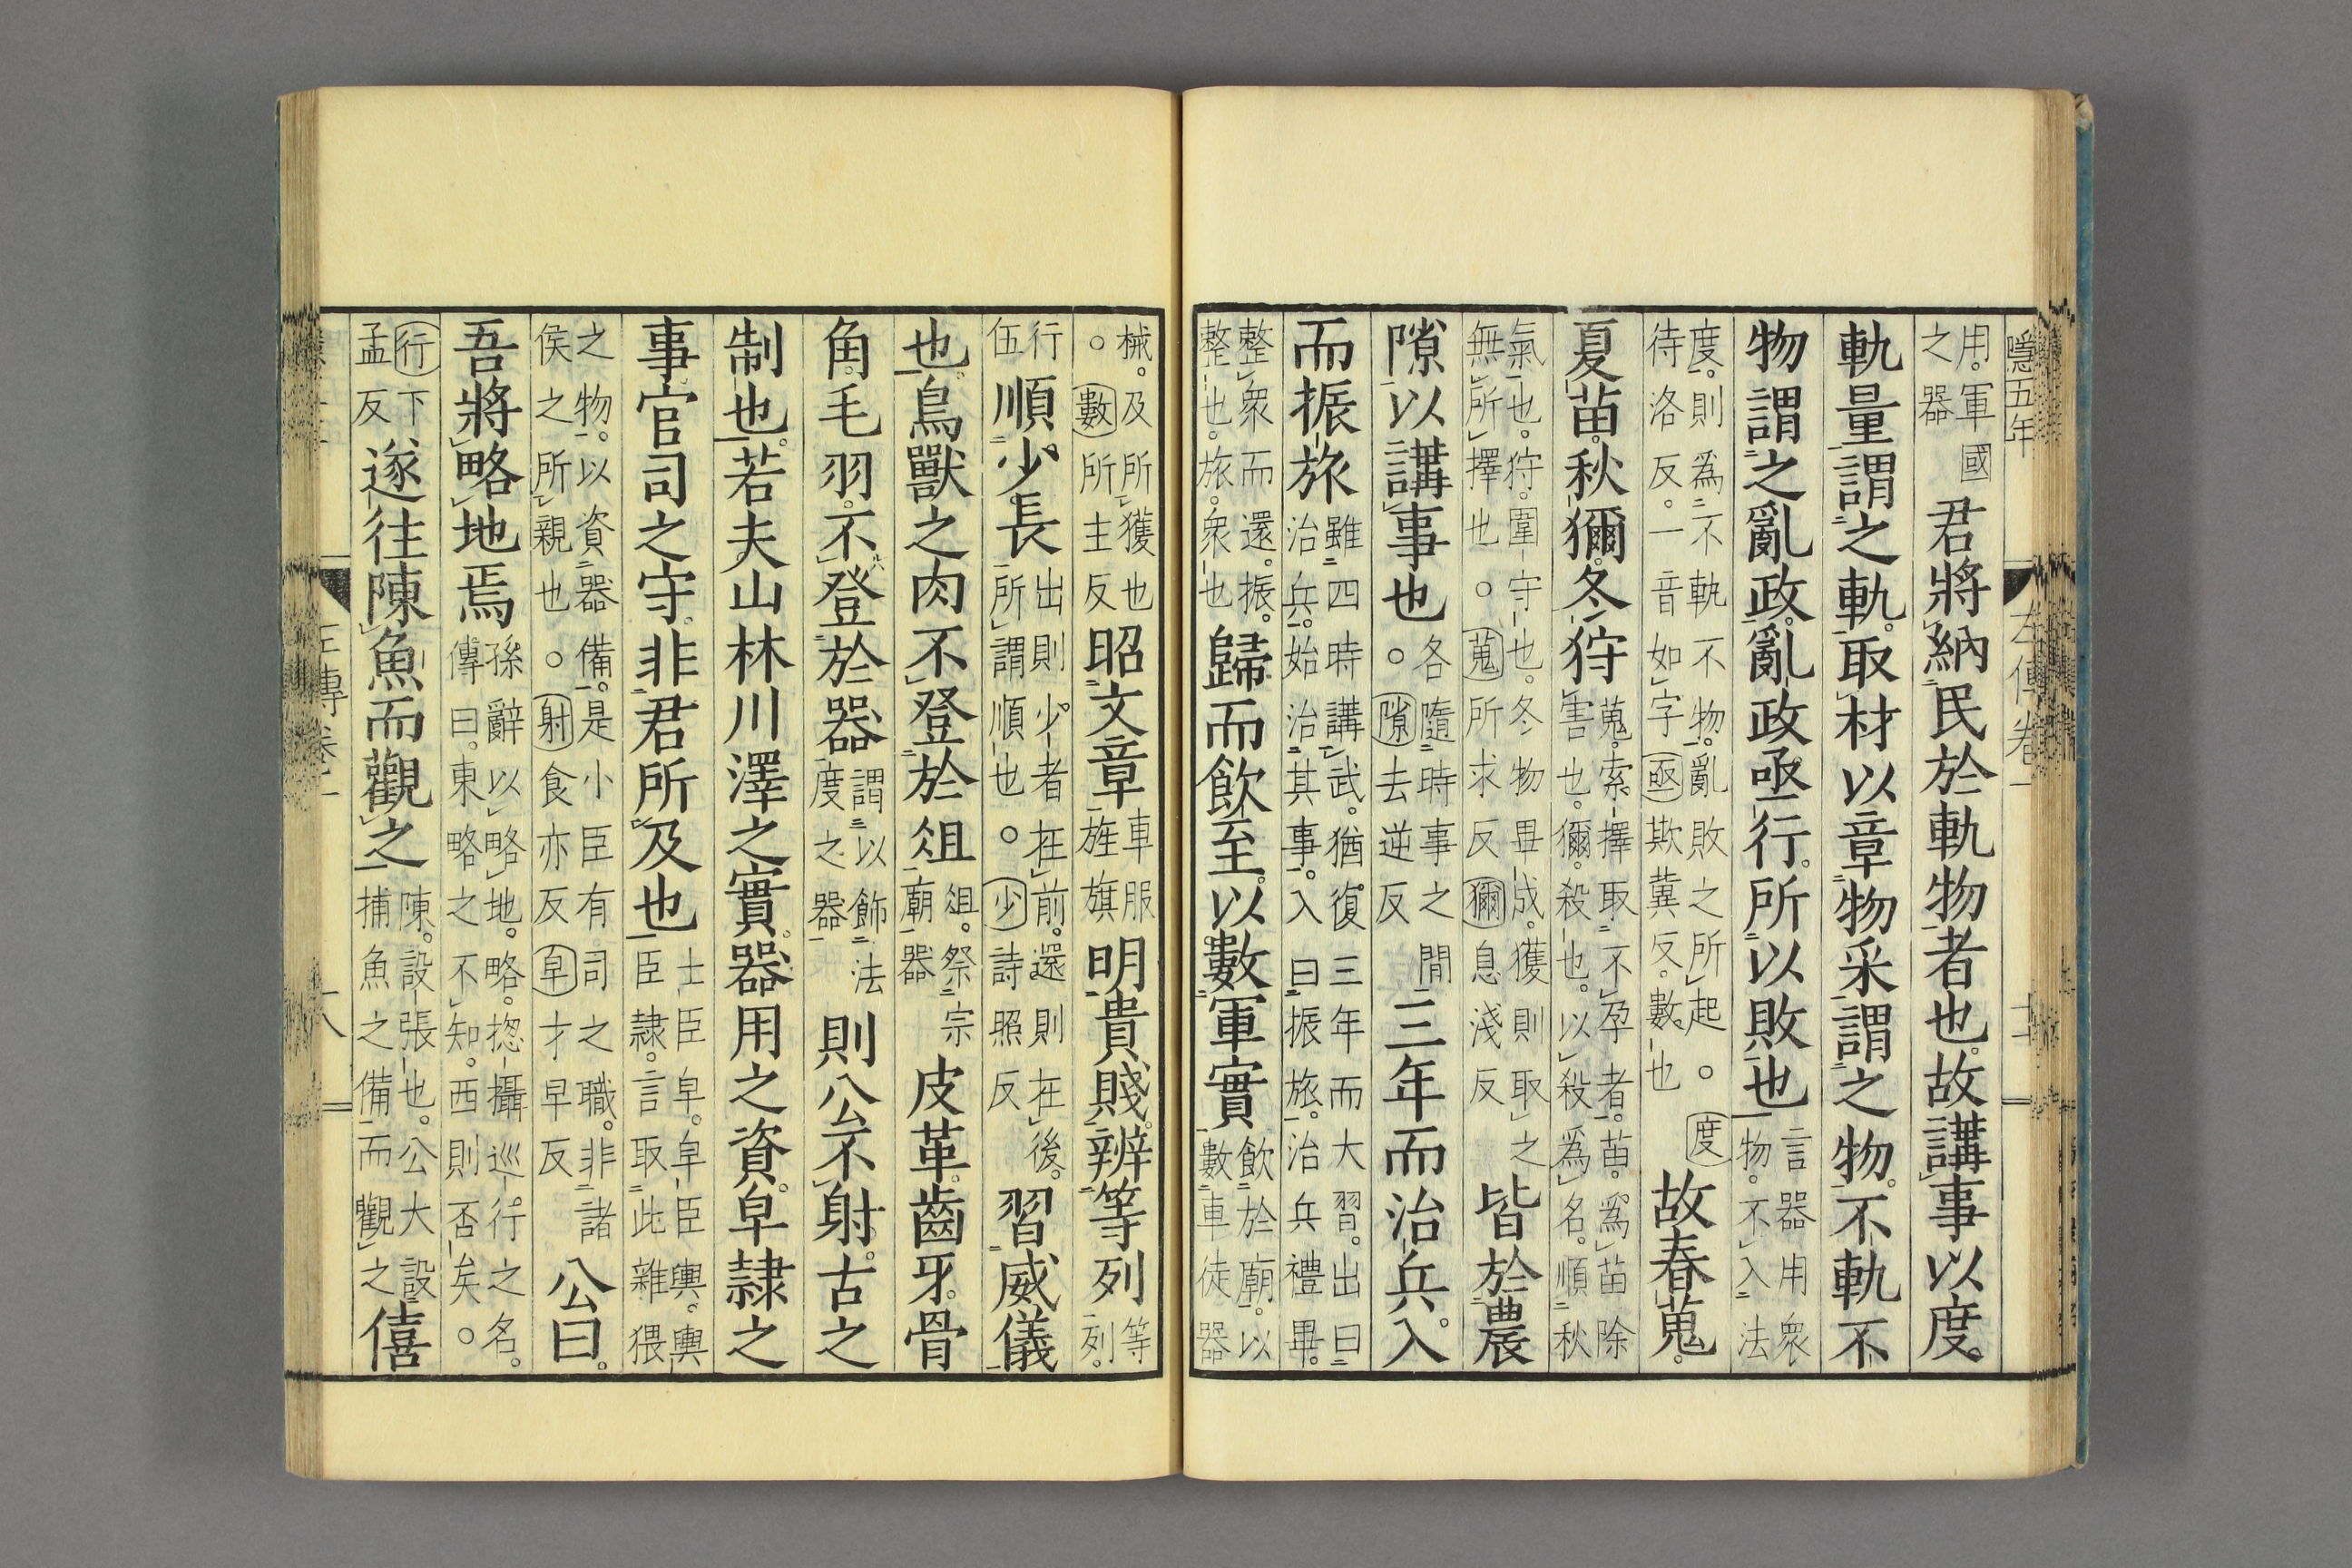 隱五年　左傳卷一
用。軍國之器君將納民於軌物者也。故講事以度。
軌量謂之軌。取材以章物采謂之物。不軌不
物謂之亂政。亂政亟行。所以敗也言器用衆物。不入法
度。則爲不軌不物。亂敗之所起。○度待洛反。一音如字亟欺冀反。數也故春蒐。
夏苗。秋獮。冬狩蒐。索擇取不孕者。苗。爲苗除害也。獮。殺也。以殺爲名。順秋
氣也。狩。圍守也。冬物畢成。獲則取之無所擇也。○蒐所求反獮息淺反皆於農
隙以講事也各隨時事之間○隙去逆反三年而治兵。入
而振旅雖四時講武。猶復三年而大習。出曰治兵。始治其事。入曰振旅。治兵禮畢。
整衆而還。振。整也。旅。衆也歸而飲至。以數軍實飲於廟。以數車徒器
械。及所獲也○數所主反昭文章車服旌旗明貴賤。辨等列等列。
行伍順少長出則少者在前。還則在後。所謂順也。○少詩照反習威儀
也。鳥獸之肉不登於俎俎。祭宗廟器皮革齒牙。骨
角。毛羽。不登於器謂以飾法度之器則公不射。古之
制也。若夫山林川澤之實。器用之資。皁隸之
事官司之守。非君所及也士臣皁。皁臣輿。輿臣隸。言取此雜猥
之物。以資器備。是小臣有司之職。非諸侯之所親也。○射食亦反皁才早反公曰。
吾將略地焉孫辭以略地。略。揔攝巡行之名。傳曰。東略之不知。西則否矣。○
行下孟反遂往陳魚而觀之陳。設張也。公大設捕魚之備而觀之僖